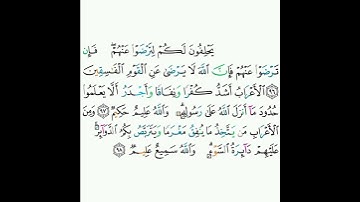 يَحْلِفُونَ لَكُمْ لِتَرْضَوْا۟ عَنْهُمْ ۖ فَإِن
تَرْضَوْا۟ عَنْهُمْ فَإِنَّ ٱللَّهَ لَا يَرْضَىٰ عَنِ ٱلْقَوْمِ ٱلْفَٰسِقِينَ
﴿٩٦﴾ ٱلْأَعْرَابُ أَشَدُّ كُفْرًا وَنِفَاقًا وَأَجْدَرُ أَلَّا يَعْلَمُوا۟
حُدُودَ مَآ أَنزَلَ ٱللَّهُ عَلَىٰ رَسُولِهِۦ ۗ وَٱللَّهُ عَلِيمٌ حَكِيمٌ ﴿٩٧﴾ وَمِنَ
ٱلْأَعْرَابِ مَن يَتَّخِذُ مَا يُنفِقُ مَغْرَمًا وَيَتَرَبَّصُ بِكُمُ ٱلدَّوَآئِرَ ۚ
عَلَيْهِمْ دَآئِرَةُ ٱلسَّوْءِ ۗ وَٱللَّهُ سَمِيعٌ عَلِيمٌ ﴿٩٨﴾